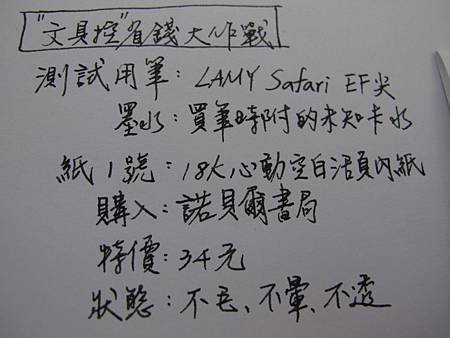 "文具控"省錢大作戰
測試用筆：LAMY Safari EF尖
墨水：買筆時附的未知卡水
紙1號：18K心動空白活頁內紙
購入：諾貝爾書局
特價：34元
狀態：不毛、不暈、不透